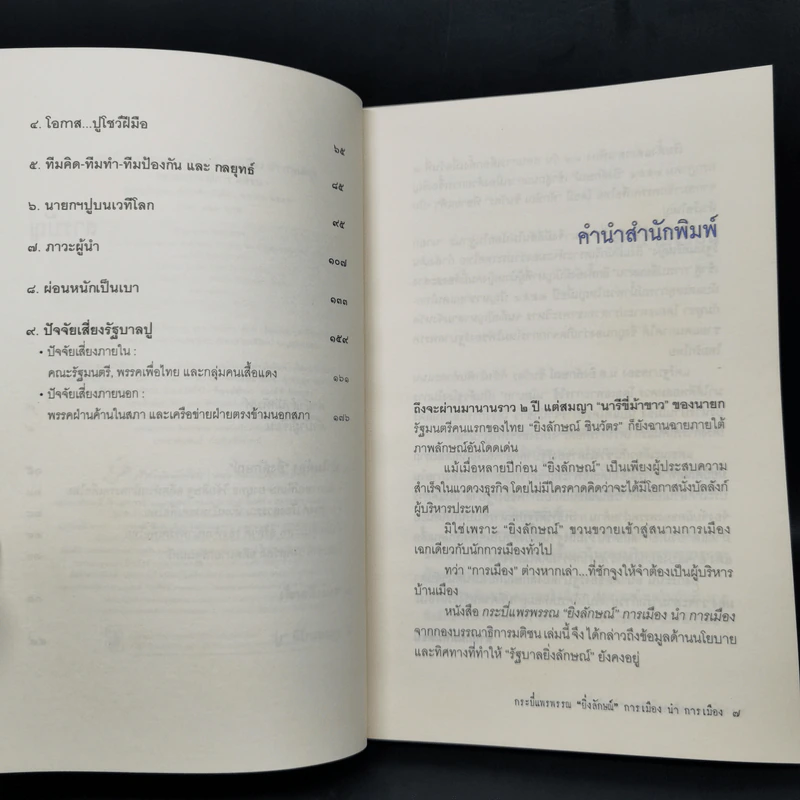 ๔. โอกาส...ปูโชว์ฝีมือ
๖๕
๕. ทีมคิด-ทีมทำ-ทีมป้องกัน และ กลยุทธ์
๘๕
๖. นายกฯปูบนเวทีโลก
๙๕
๗. ภาวะผู้นำ
๑๐๗
๘. ผ่อนหนักเป็นเบา
๑๓๓
๙. ปัจจัยเสี่ยงรัฐบาลปู
๑๕๙
• ปัจจัยเสี่ยงภายใน :
คณะรัฐมนตรี, พรรคเพื่อไทย และกลุ่มคนเสื้อแดง
๑๖๑
• ปัจจัยเสี่ยงภายนอก :
พรรคฝ่ายค้านในสภา และเครือข่ายฝ่ายตรงข้ามนอกสภา
๑๗๖
คำนำสำนักพิมพ์
ถึงจะผ่านมานานราว ๒ ปี แต่สมญา "นารีขี่ม้าขาว" ของนายก
รัฐมนตรีคนแรกของไทย "ยิ่งลักษณ์ ชินวัตร" ก็ยังฉานฉายภายใต้
ภาพลักษณ์อันโดดเด่น
แม้เมื่อหลายปีก่อน "ยิ่งลักษณ์" เป็นเพียงผู้ประสบความ
สำเร็จในแวดวงธุรกิจ โดยไม่มีใครคาดคิดว่าจะได้มีโอกาสนั่งบัลลังก์
ผู้บริหารประเทศ
มิใช่เพราะ "ยิ่งลักษณ์" ขวนขวายเข้าสู่สนามการเมือง
เฉกเดียวกับนักการเมืองทั่วไป
ทว่า "การเมือง" ต่างหากเล่า...ที่ชักจูงให้จำต้องเป็นผู้บริหาร
บ้านเมือง
หนังสือ กระบี่แพรพรรณ "ยิ่งลักษณ์" การเมือง นำ การเมือง
จากกองบรรณาธิการมติชน เล่มนี้ จึง ได้กล่าวถึงข้อมูลด้านนโยบาย
และทิศทางที่ทำให้ "รัฐบาลยิ่งลักษณ์" ยังคงอยู่
กระบี่แพรพรรณ "ยิ่งลักษณ์" การเมือง นำ การเมือง ๗